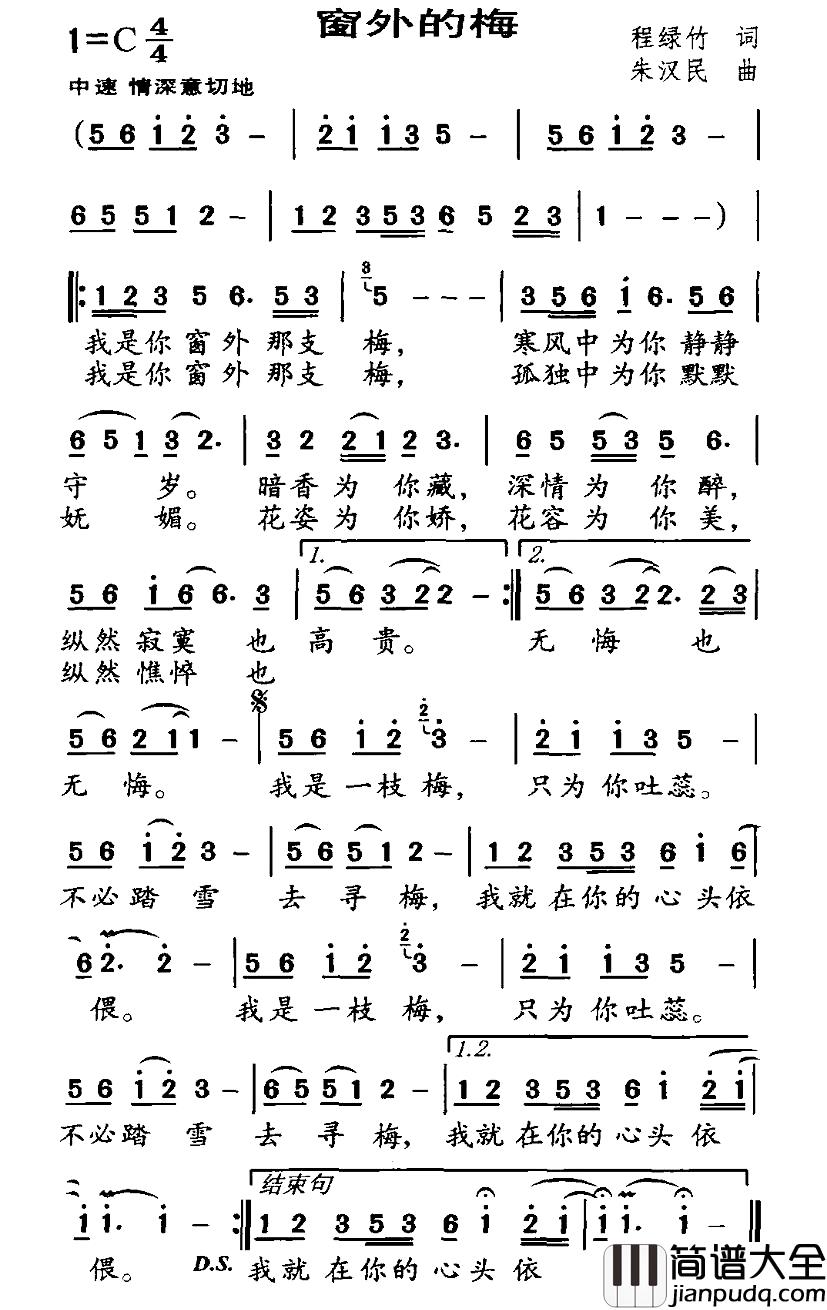 窗外的梅
1=C 4/4
程绿竹 词
朱汉民 曲
中速 情深意切地
(5 6 i 2 3 - | 2 i i 3 5 - | 5 6 i 2 3 - |
6 5 5 1 2 - | 1 2 3 5 3 6 5 2 3 | 1 - - -) |
‖: 1 2 3 5 6. 5 3 | 3 5 - - - | 3 5 6 i 6. 5 6
我是你窗外那支 梅， 寒风中为你静静
我是你窗外那支 梅， 孤独中为你默默
6 5 1 3 2. | 3 2 2 1 2 3. | 6 5 5 3 5 6. |
守 岁。 暗香为 你藏， 深情为 你醉，
妩 媚。 花姿为 你娇， 花容为 你美，
1. 2.
5 6 i 6 6. 3 | 5 6 3 2 2 - :‖ 5 6 3 2 2. 2 3 |
纵然寂寞 也 高 贵。 无 悔 也
纵然憔悴 也
5 6 2 1 1 - | 5 6 i 2 2 3 - | 2 i i 3 5 - |
无 悔。 我是一枝梅， 只为你吐蕊。
5 6 i 2 3 - | 5 6 5 1 2 - | 1 2 3 5 3 6 i 6 |
不必踏 雪 去 寻 梅， 我就在你的心头依
6 2. 2 - | 5 6 i 2 2 3 - | 2 i i 3 5 - |
偎。 我是一枝梅， 只为你吐蕊。
1.2.
5 6 i 2 3 - | 6 5 5 1 2 - | 1 2 3 5 3 6 i 2 i
不必踏 雪 去 寻 梅， 我就在你的心头 依
结束句
i i. i - :‖ 1 2 3 5 3 6 i 2 i | i i. i - ‖
偎。 D.S. 我就在你的心头 依
简谱大全
jianpudq.com